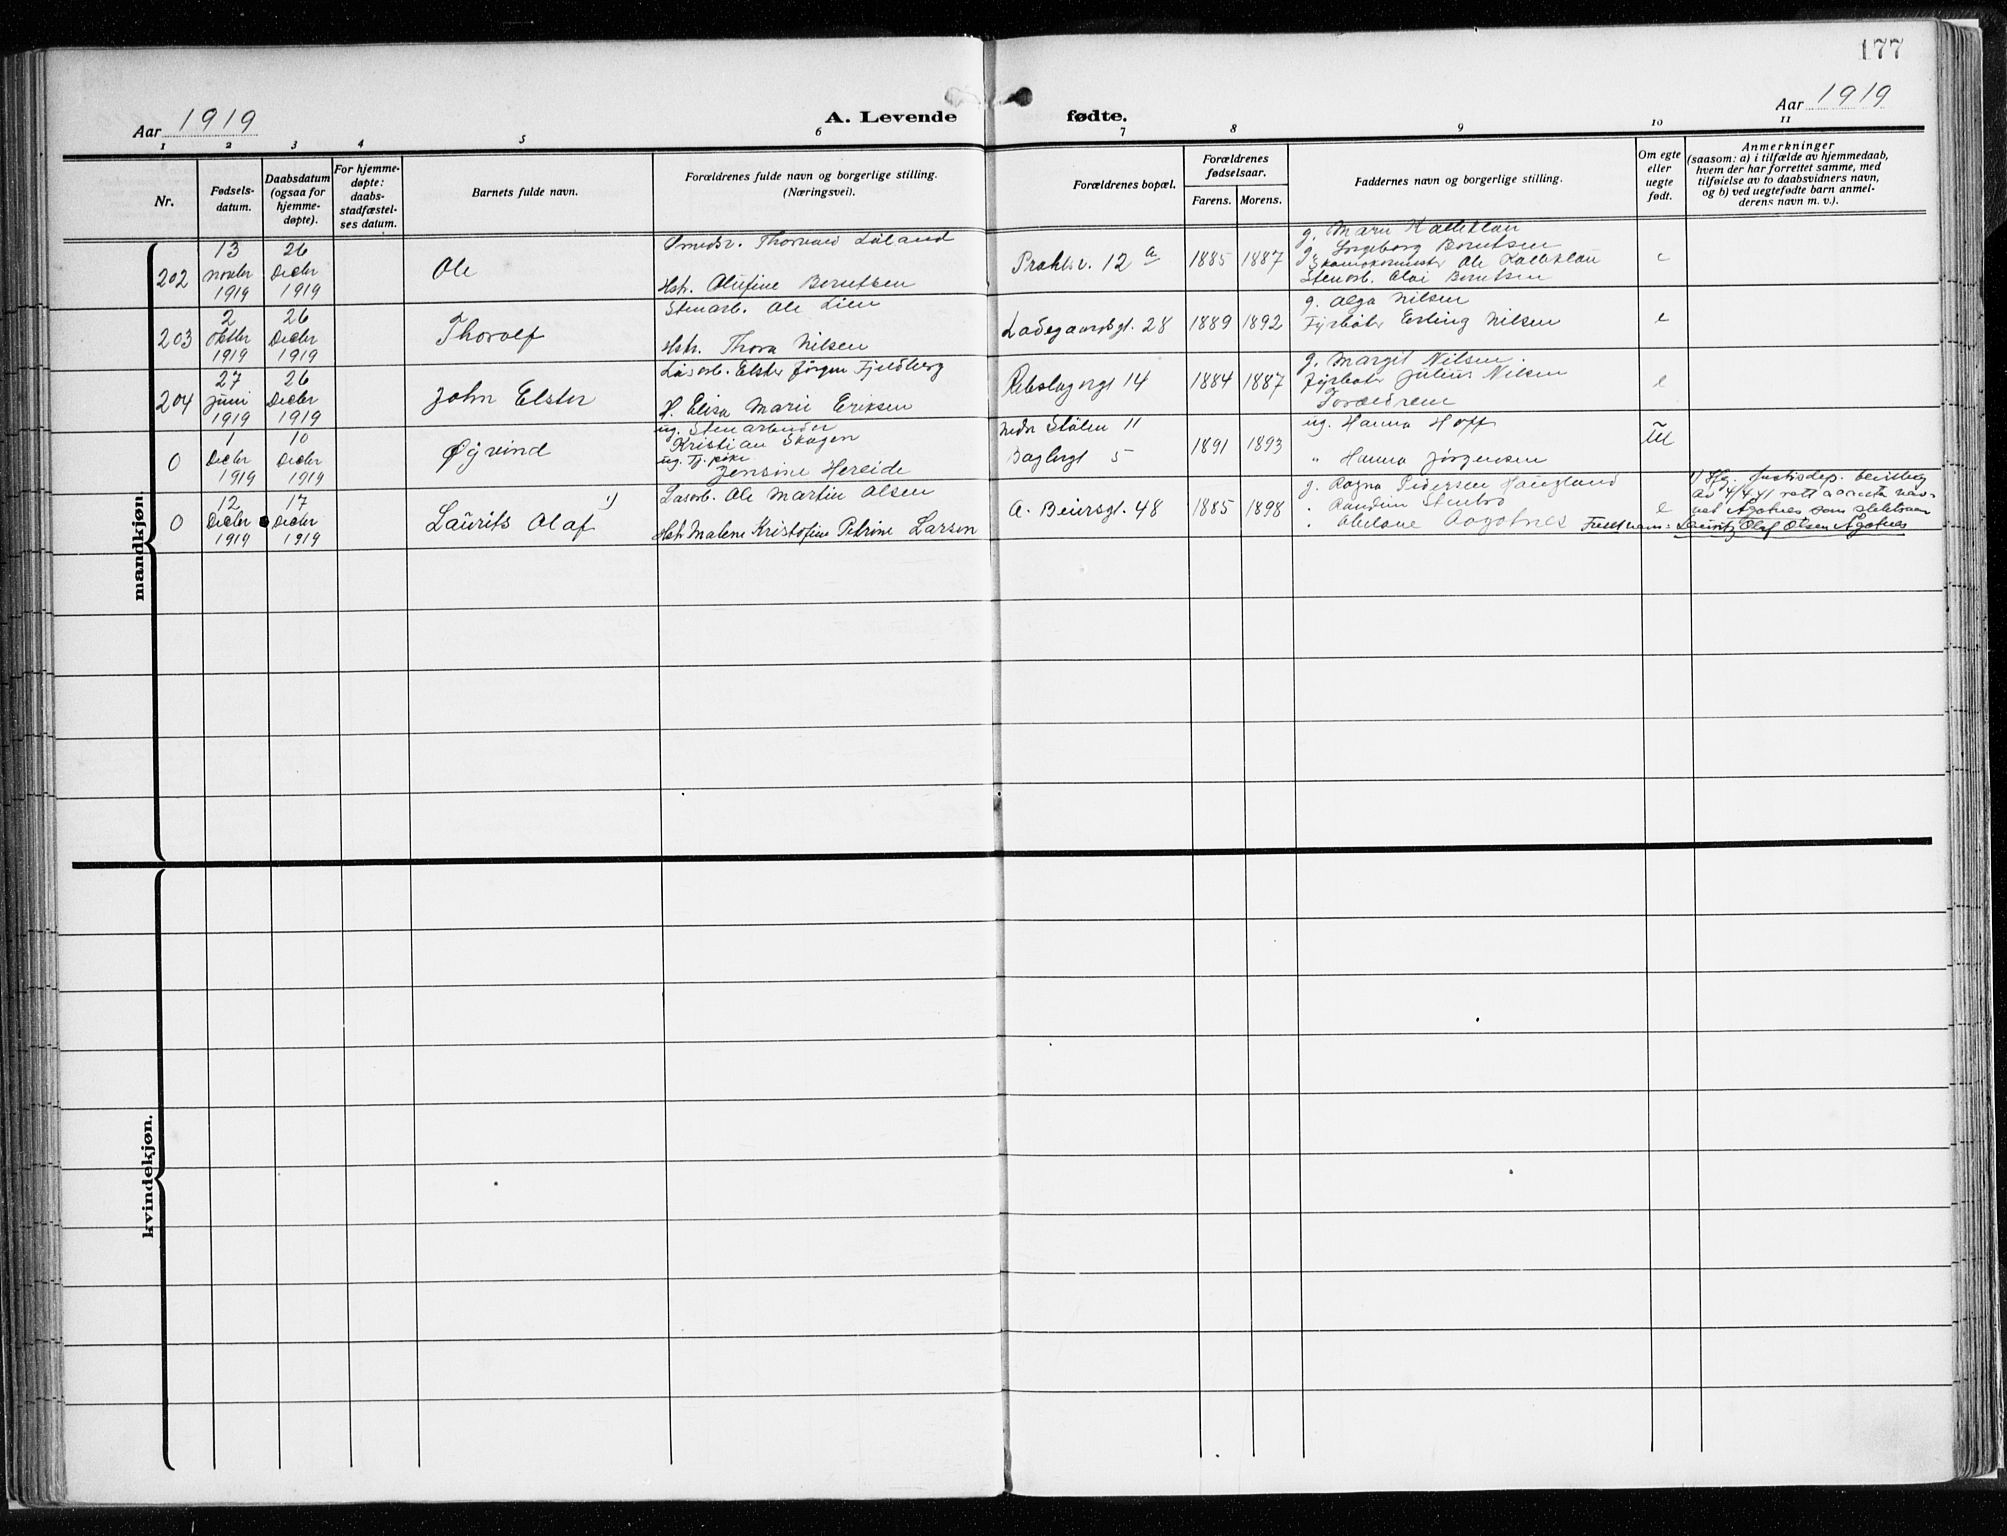 177
Aar 1919
A. Levende fødte.
Aar 1919
1 2 3 4 5 6 7 8 9 10 11
Nr.
Fødsels-
datum.
Daabsdatum
(ogsaa for
hjemme-
døpte).
For hjemme-
døpte:
daabs-
stadfæstel-
ses datum.
Barnets fulde navn.
Forældrenes fulde navn og borgerlige stilling.
(Næringsvei).
Forældrenes bopæl.
Forældrenes
fødselsaar.
Farens. Morens.
Faddernes navn og borgerlige stilling.
Om egte
eller
uegte
født.
Anmerkninger
(saasom: a) i tilfælde av hjemmedaab,
hvem der har forrettet samme, med
tilføielse av to daabsvidners navn,
og b) ved uegtefødte barn anmel-
derens navn m. v.).
mandkjøn.
202
13
Novbr
1919
26
Decbr
1919
Ole
Smedsv. Thorvald Løland
Hstr. Olufine Berntsen
Prahlsv. 12 a
1885 1887
g. Marie
g. Ingeborg Berntsen
Ole
Stenarb. Olai Berntsen
e
203
2
Oktbr
1919
26
Decbr
1919
Thorolf
Stenarb. Ole Lien
Hstr. Thora Nilsen
Ladegaardsgt. 28
1889 1892
g. Olga Nilsen
Fyrbøter Erling Nilsen
e
204
27
Juni
1919
26
Decbr
1919
John Elster
Løsarb. Elster Jørgen Fjeldberg
H. Elisa Marie Eriksen
Rebslagergt 14
1884 1887
g. Margit Nilsen.
Fyrbøter Julius Nilsen
Forældrene
e
0
1
Decbr
1919
10
Decbr
1919
Øyvind
ug. Stenarbeider
Kristian Skogen
ug. Tj. pike
Jensine Hereide
Nedr Stølen 11
Baglergt 5
1891 1893
ug. Hanna Hoff
" Hanna Jørgensen
0
12
Decbr
1919
17
Decbr
1919
Laurits Olaf 1)
Løsarb. Ole Martin Olsen
Hstr Malene Kristofine Petrine Larsen
A. Beiersgt. 48
1885 1898
g. Ragna Pedersen Haugland
" Randine Stenbro
" Abelone Aagotnes
e
1) Iflg. justisdep. bevilling
av 4/4.41 rett
Agotnes som slektsnavn
Fullt navn: Lauritz Olaf Olsen Agotnes
kvindekjøn.